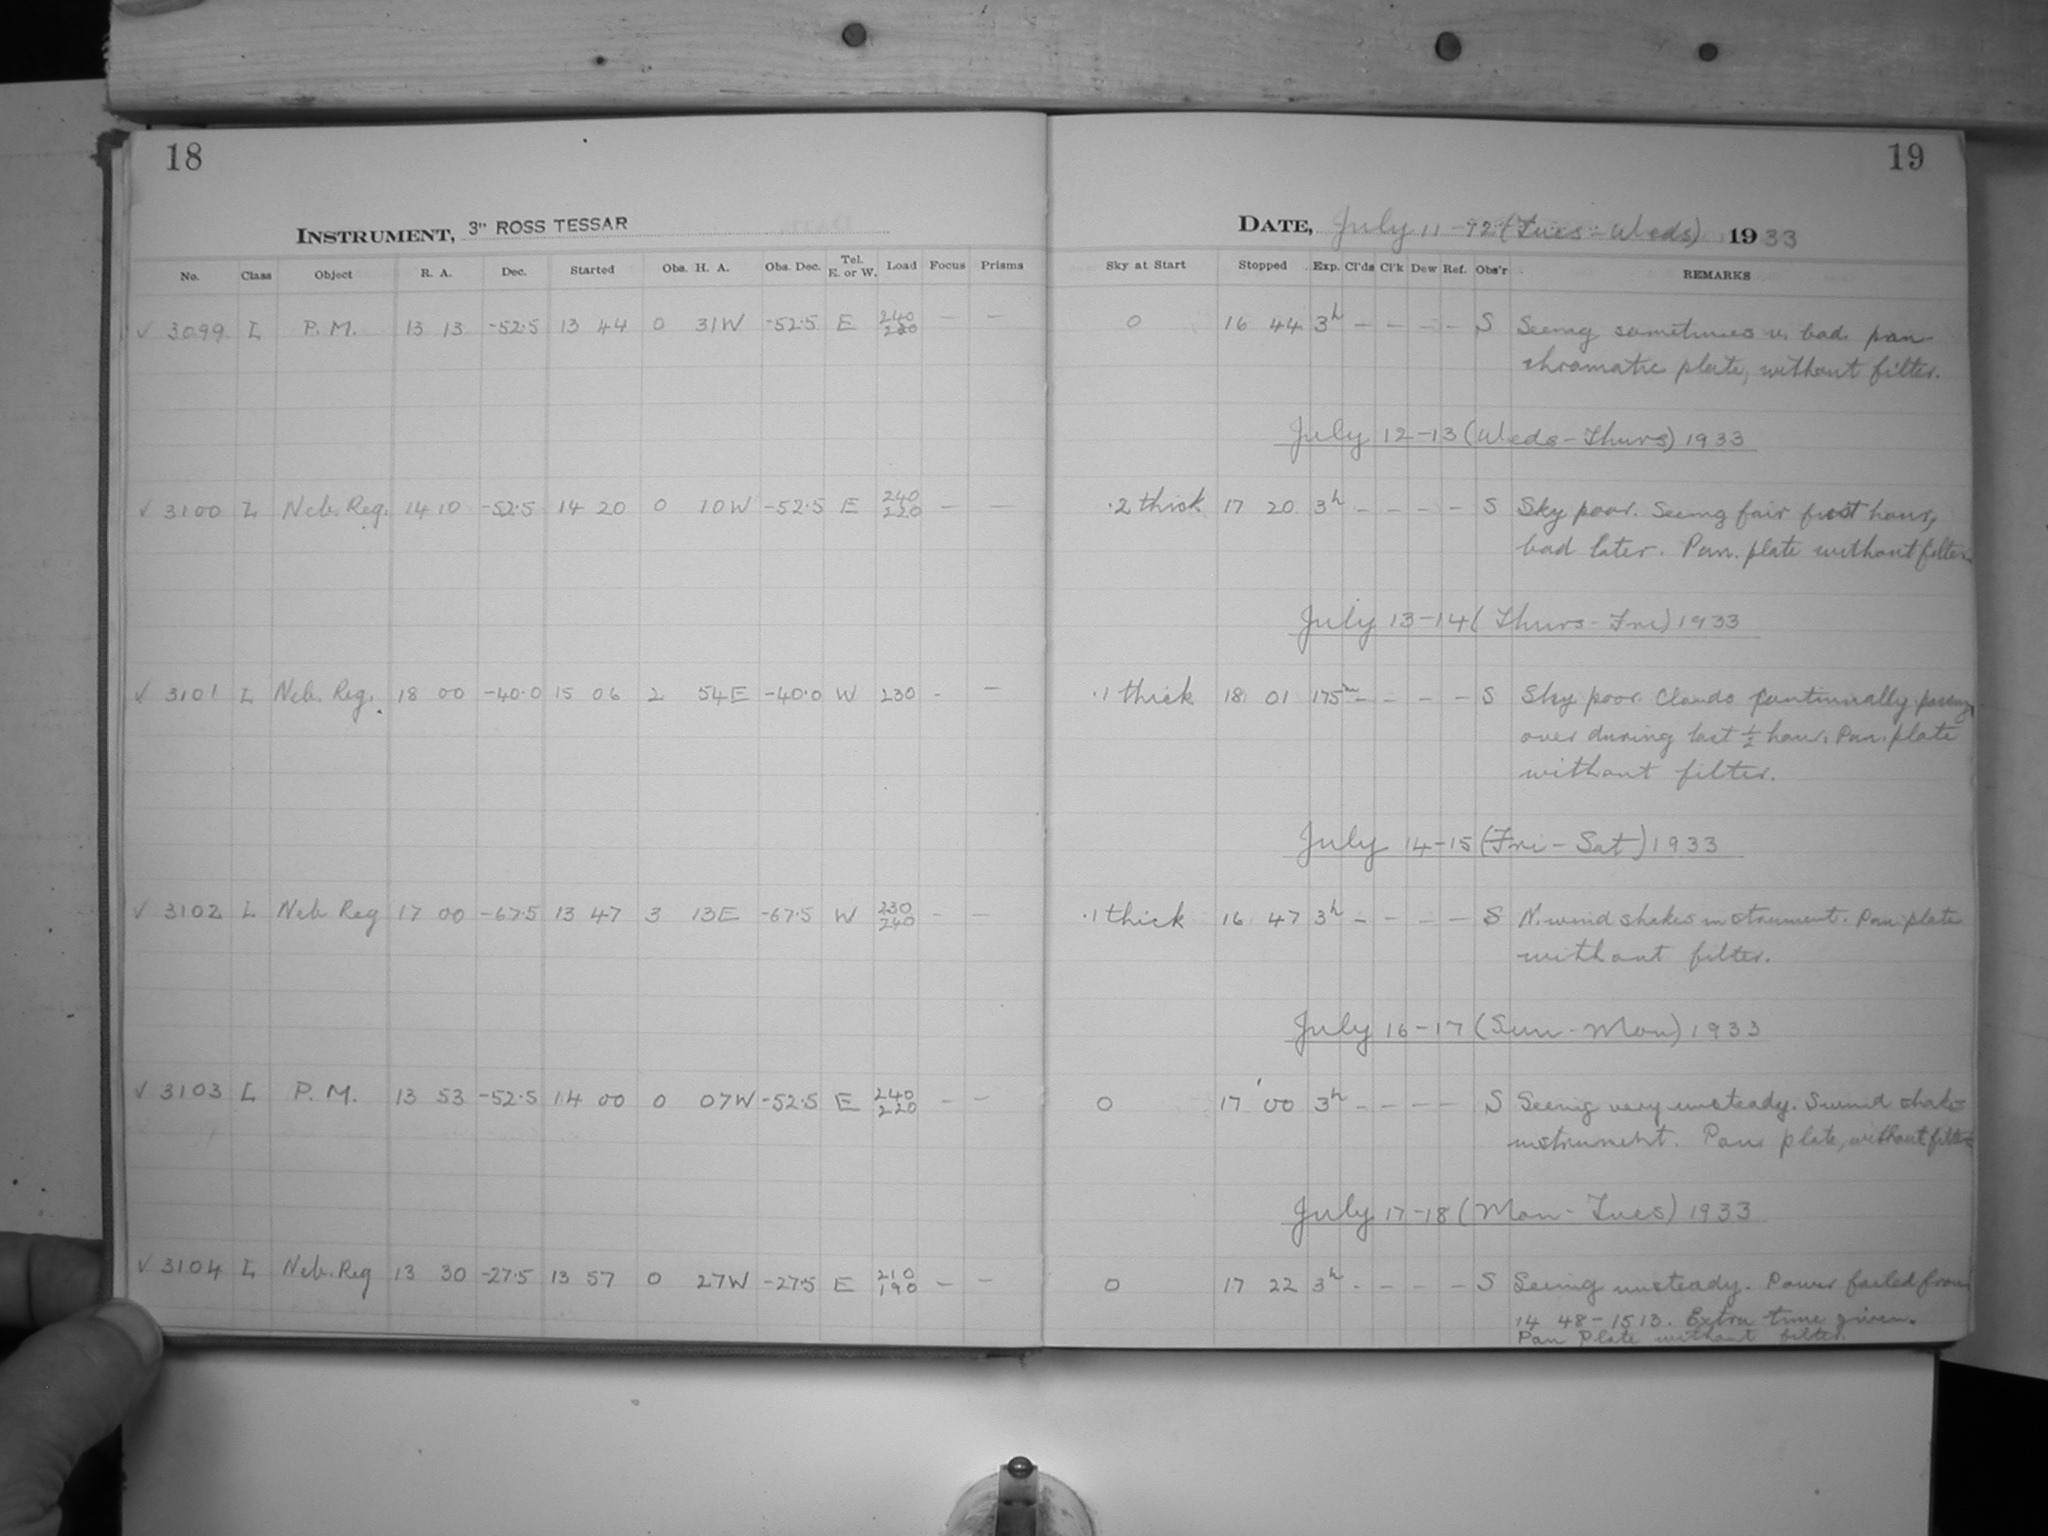 18
INSTRUMENT, 3" ROSS TESSAR
No. Class Object R. A. Dec. Started Obs. H. A. Obs. Dec. Tel. E. or W. Load Focus Prisms
✓ 3099 L P. M. 13 13 -52.5 13 44 0 31W -52.5 E 240 220 — —
✓ 3100 L Neb. Reg. 14 10 -52.5 14 20 0 10W -52.5 E 240 220 — —
✓ 3101 L Neb. Reg. 18 00 -40.0 15 06 2 54E -40.0 W 230 - —
✓ 3102 L Neb Reg 17 00 -67.5 13 47 3 13E -67.5 W 230 240 - —
✓ 3103 L P. M. 13 53 -52.5 14 00 0 07W -52.5 E 240 220 — —
✓ 3104 L Neb. Reg 13 30 -27.5 13 57 0 27W -27.5 E 210 190 — —
19
DATE, July 11-12 (Tues-Weds) 1933
Sky at Start Stopped Exp. Cl'ds Cl'k Dew Ref. Obs'r REMARKS
0 16 44 3h - - - - S Seeing sometimes v. bad. pan-
chromatic plate, without filter.
July 12-13 (Weds-Thurs) 1933
.2 thick 17 20 3h - - - - S Sky poor. Seeing fair first hour,
bad later. Pan. plate without filter.
July 13-14 (Thurs-Fri) 1933
.1 thick 18 01 175m - - - - S Sky poor Clouds continually passing
over during last ½ hour. Pan. plate
without filter.
July 14-15 (Fri-Sat) 1933
.1 thick 16 47 3h - - - - S N. wind shakes instrument. Pan plate
without filter.
July 16-17 (Sun-Mon) 1933
0 17 00 3h - - - - S Seeing very unsteady. S wind shakes
instrument. Pan plate, without filter
July 17-18 (Mon-Tues) 1933
0 17 22 3h - - - - S Seeing unsteady. Power failed from
14 48-15 13. Extra time given.
Pan Plate without filter.